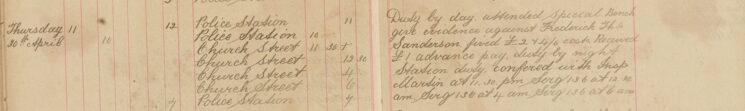 Police Station
12 Police Station 11 Duty by day. attended Special Bench
Thursday 11 Police Station 10 give evidence against Frederick Th
30th April 10 Church Street 11 30 Sanderson fined £2 & 4/6 cost. Received
Church Street 12 30 £1 advance pay, duty by night
Church Street 4 Station duty. confered with Insp
Church Street 6 Martin at 11.30 pm Serg 136 at 12.30
7 Police Station 7 am Serg 136 at 4 am Serg 136 at 6 am